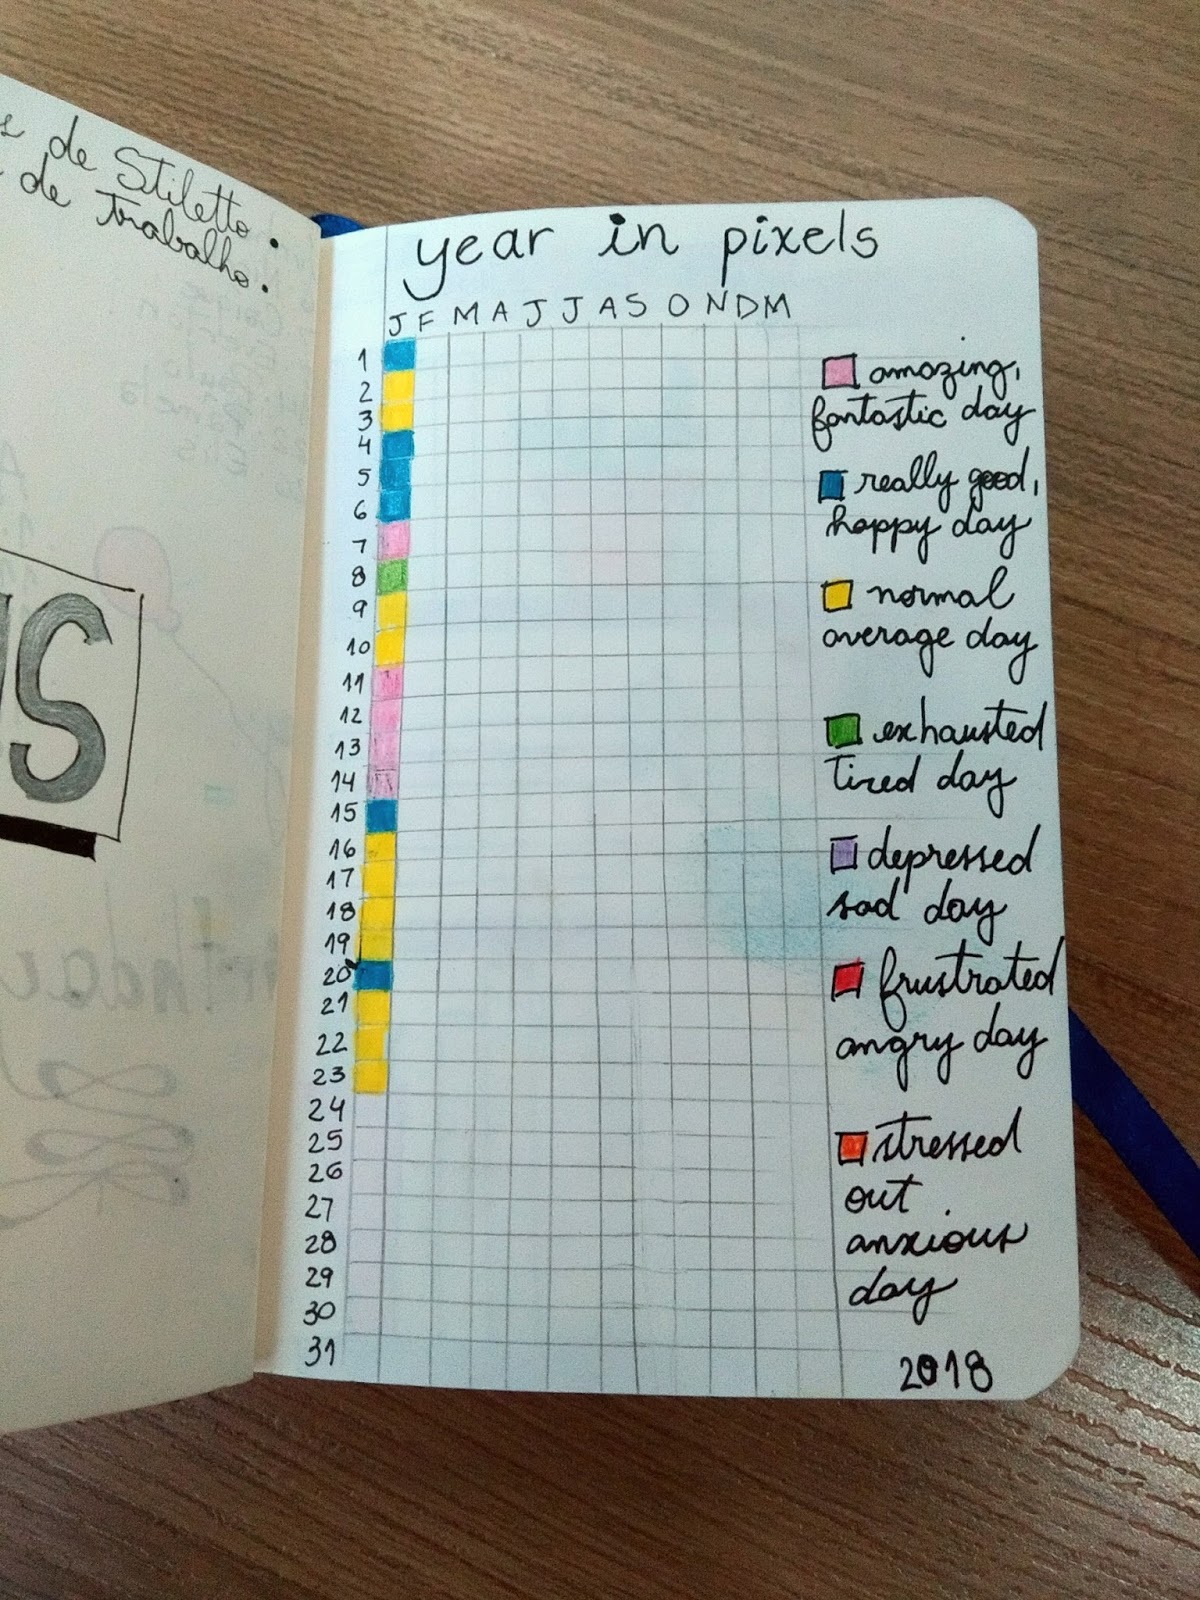 de Stiletto.
de trabalho.
S
year in pixels
J F M A J J A S O N D M
1
2
3
4
5
6
7
8
9
10
11
12
13
14
15
16
17
18
19
20
21
22
23
24
25
26
27
28
29
30
31
amazing,
fantastic day
really good,
happy day
normal
average day
exhausted
tired day
depressed
sad day
frustrated
angry day
stressed
out
anxious
day
2018